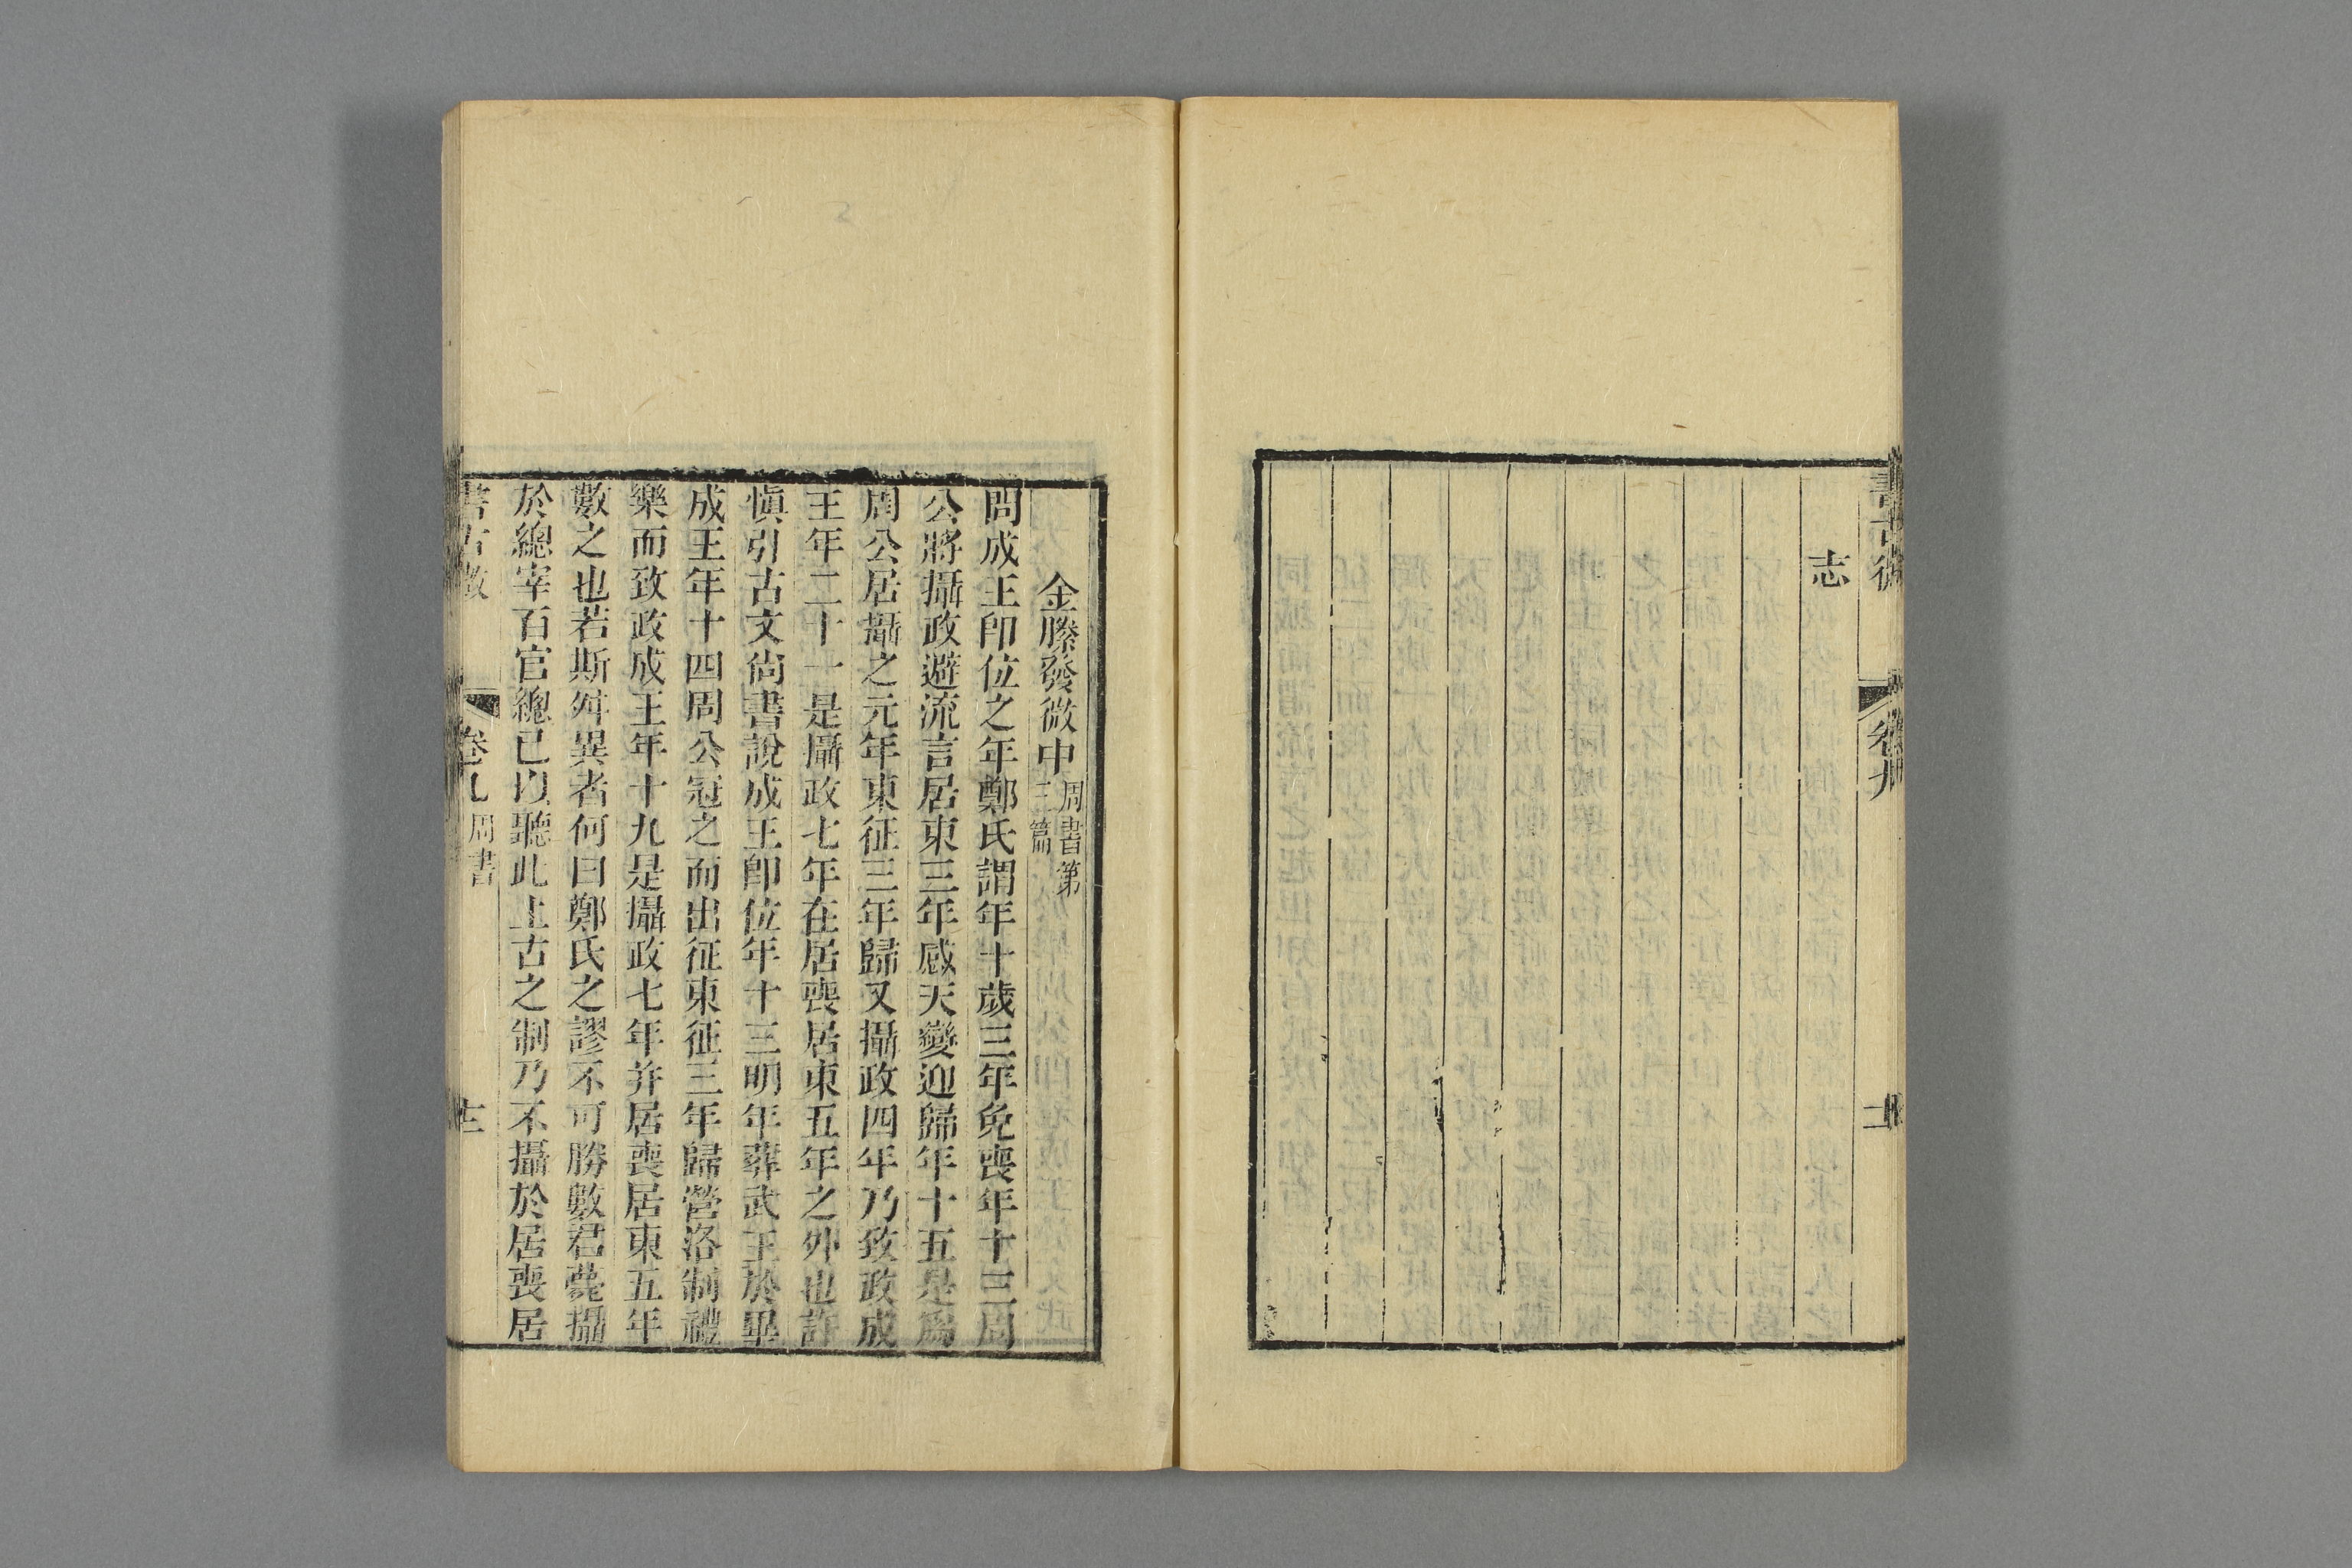 書古微
卷九
志
金縢發微中周書第三篇
問成王卽位之年鄭氏謂年十歲三年免喪年十三周
公將攝政避流言居東三年感天變迎歸年十五是爲
周公居攝之元年東征三年歸又攝政四年乃致政成
王年二十一是攝政七年在居喪居東五年之外也許
愼引古文尙書說成王卽位年十三明年葬武王於畢
成王年十四周公冠之而出征東征三年歸營洛制禮
樂而致政成王年十九是攝政七年并居喪居東五年
數之也若斯舛異者何曰鄭氏之謬不可勝數君薨攝
於總宰百官總已以聽此上古之制乃不攝於居喪居
書古微
卷九 周書